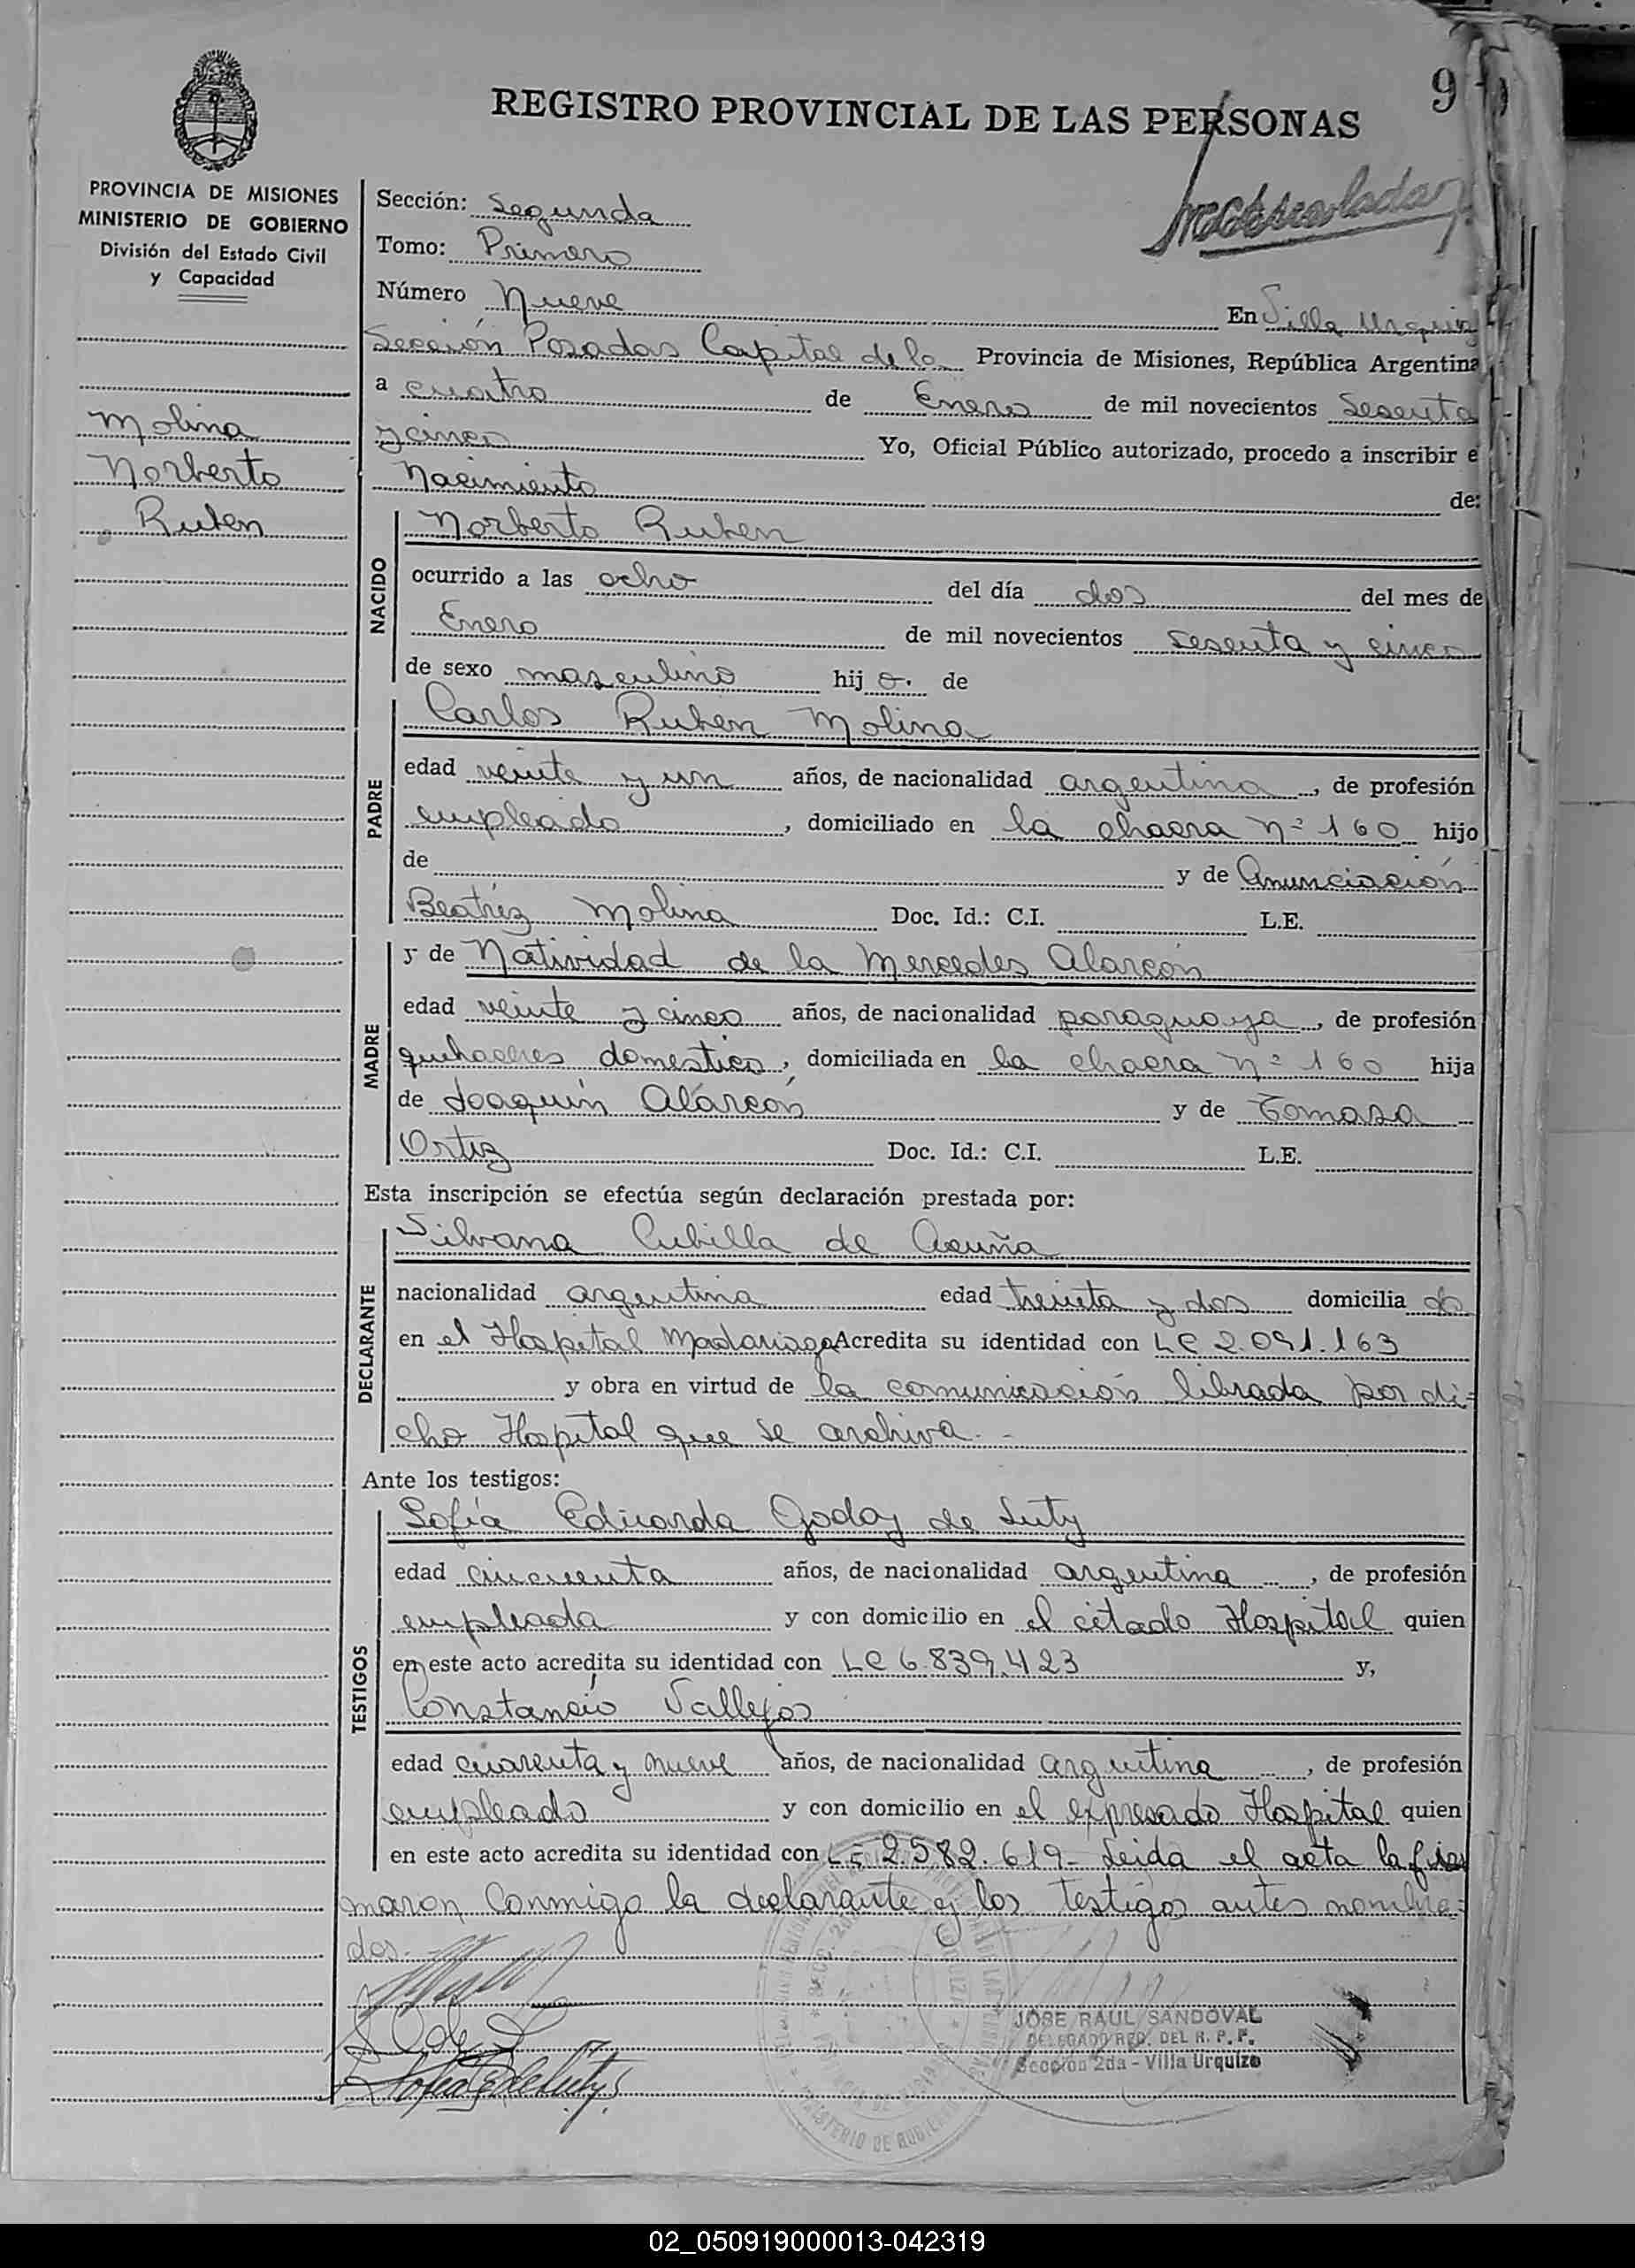 REGISTRO PROVINCIAL DE LAS PERSONAS
9
PROVINCIA DE MISIONES
MINISTERIO DE GOBIERNO
División del Estado Civil
y Capacidad
Molina
Norberto
Ruben
Sección: Segunda
Tomo: Primero
Número Nueve En Villa Urquiza
Sección Posadas Capital de la Provincia de Misiones, República Argentina
a cuatro de Enero de mil novecientos sesenta
y cinco Yo, Oficial Público autorizado, procedo a inscribir e
Nacimiento de:
NACIDO
Norberto Ruben
ocurrido a las ocho del día dos del mes de
Enero de mil novecientos sesenta y cinco
de sexo masculino hij o. de
PADRE
Carlos Ruben Molina
edad veinte y un años, de nacionalidad argentina, de profesión
empleado, domiciliado en la chacra nº 160 hijo
de y de Anunciación
Beatríz Molina Doc. Id.: C.I. L.E.
MADRE
y de Natividad de la Mercedes Alarcón
edad veinte y cinco años, de nacionalidad paraguaya, de profesión
quehaceres domestico, domiciliada en la chacra nº 160 hija
de Joaquín Alarcón y de Tomasa
Ortiz Doc. Id.: C.I. L.E.
Esta inscripción se efectúa según declaración prestada por:
DECLARANTE
Silvana Cubilla de Acuña
nacionalidad argentina edad treinta y dos domicilia da
en el Hospital Madariaga Acredita su identidad con LC 2.091.163
y obra en virtud de la comunicación librada por di=
cho Hospital que se archiva. -
Ante los testigos:
TESTIGOS
Sofía Eduarda Godoy de Luty
edad cincuenta años, de nacionalidad argentina, de profesión
empleada y con domicilio en el citado Hospital quien
en este acto acredita su identidad con LC 6.839.423 y,
Constancio Vallejos
edad cuarenta y nueve años, de nacionalidad argentina, de profesión
empleado y con domicilio en el expresado Hospital quien
en este acto acredita su identidad con LE 2.582.619- Leida el acta la fir
maron conmigo la declarante y los testigos antes nombra=
dos.
JOSE RAUL SANDOVAL
DELEGADO REG. DEL R. P. P.
Sección 2da - Villa Urquiza
02_050919000013-042319